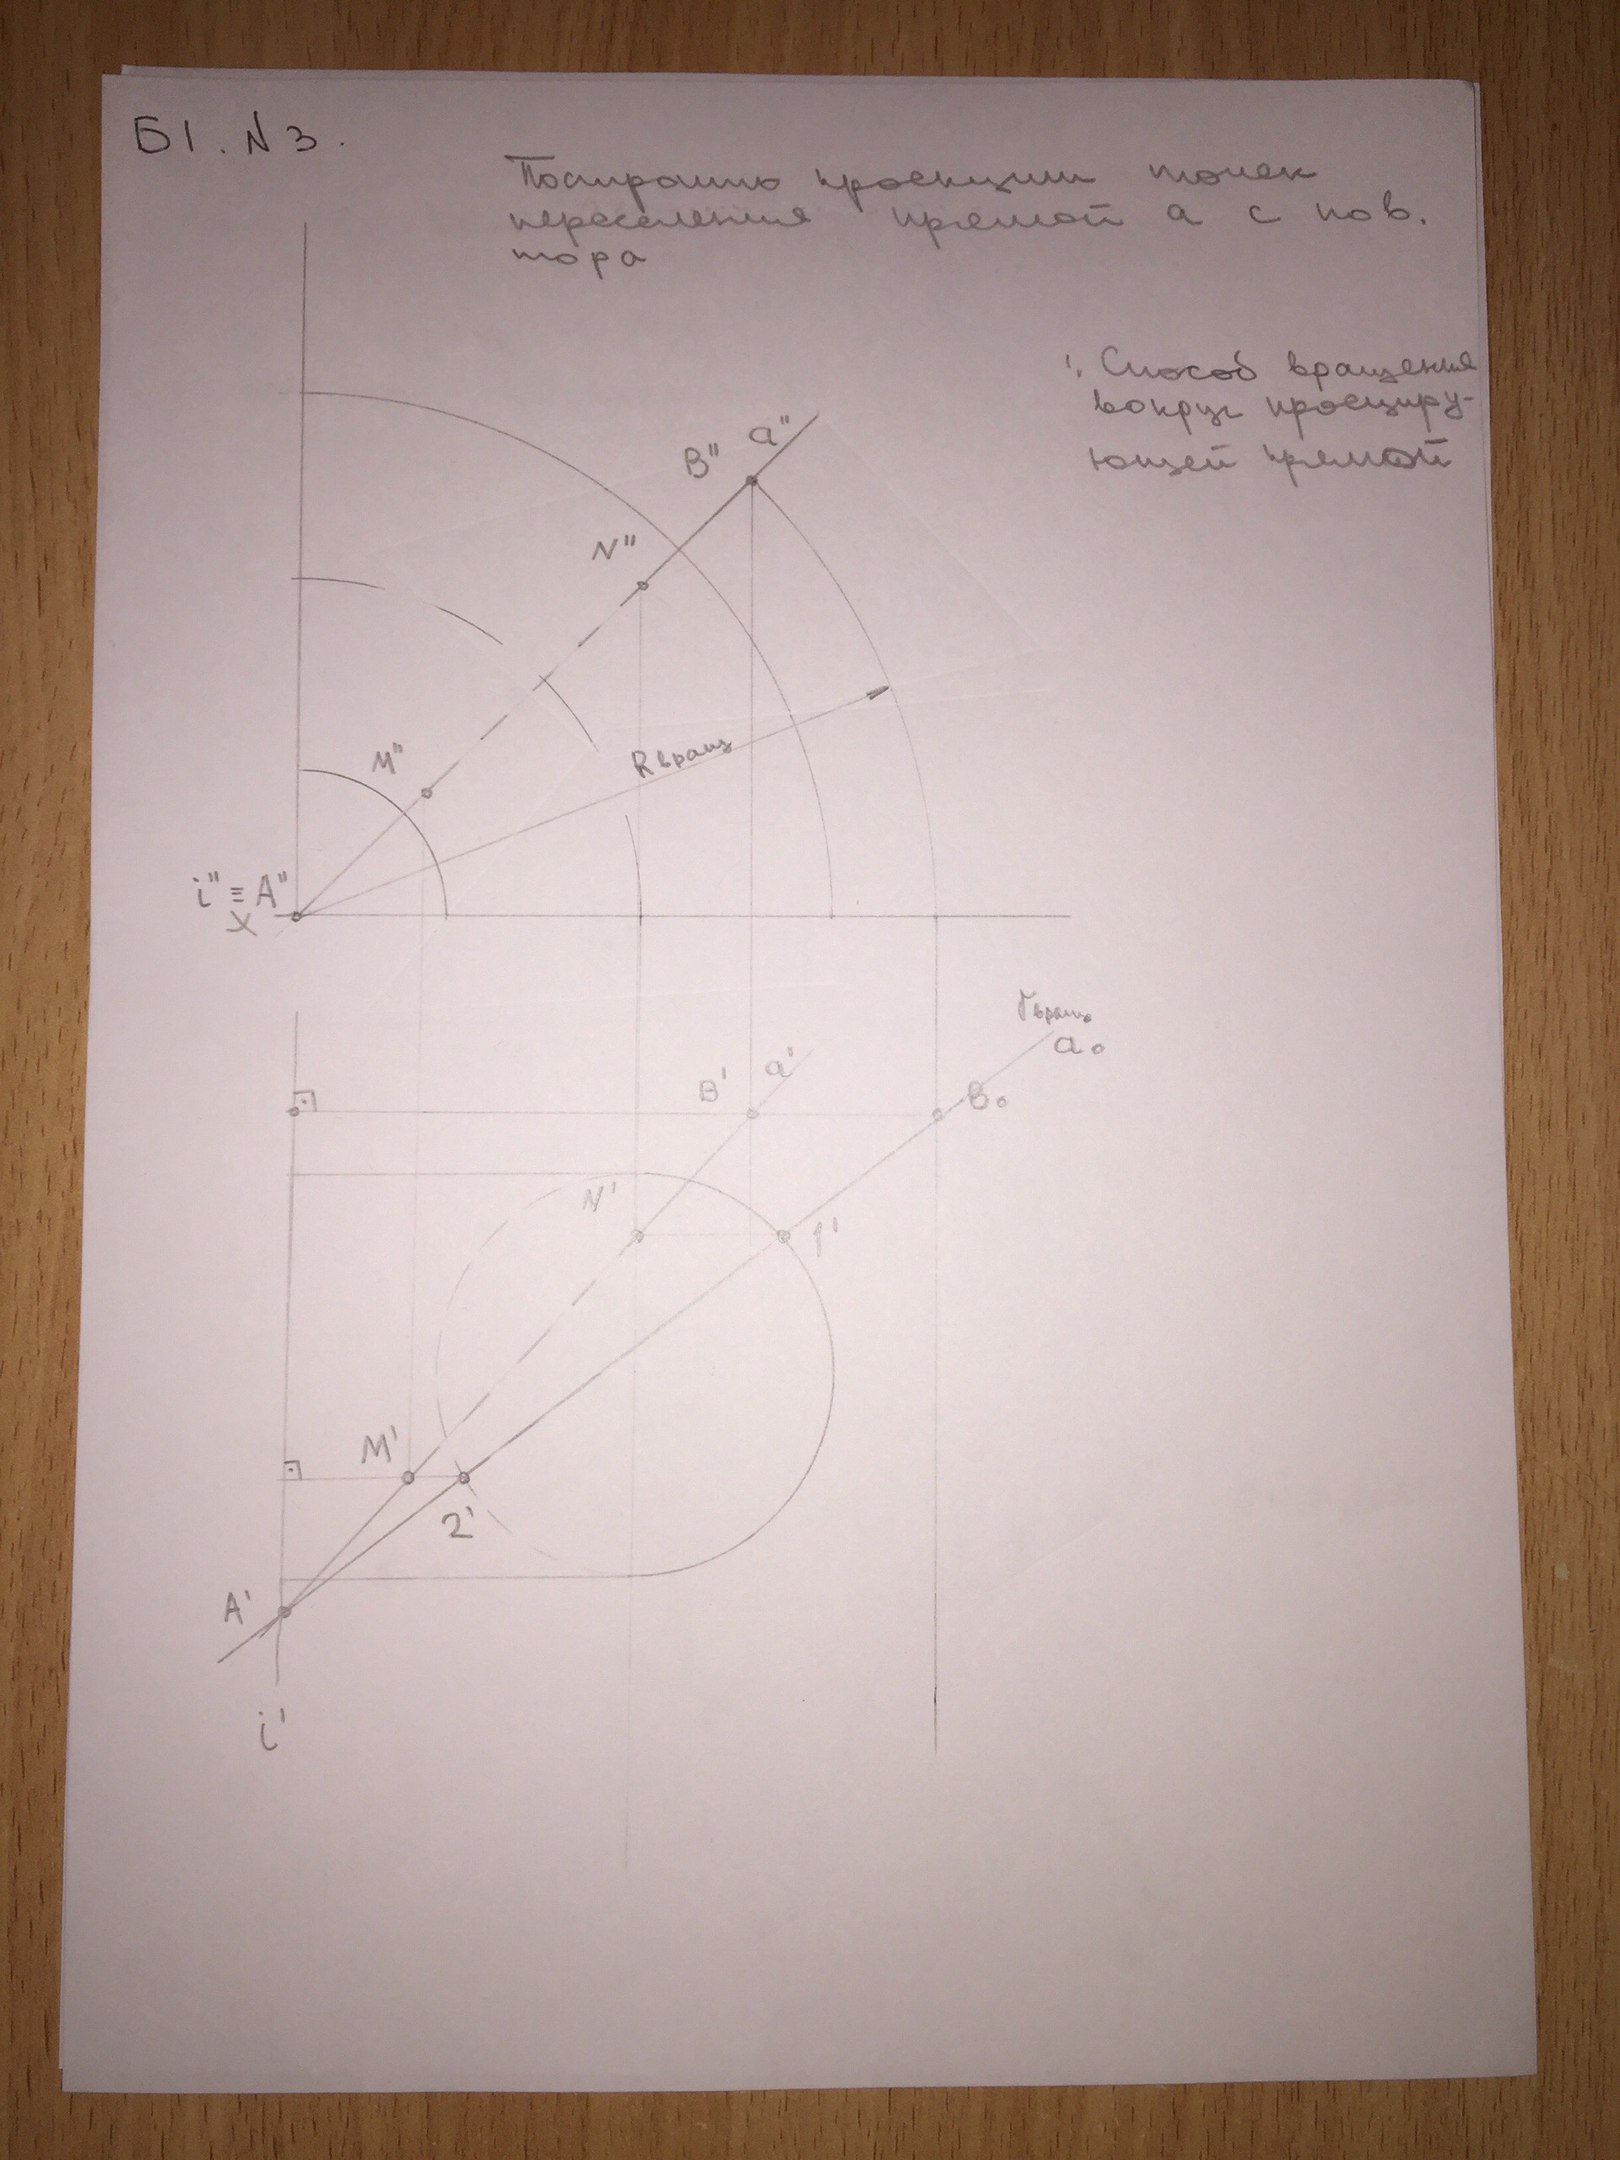 Б1. N 3.
Построить проекции точек
пересечения прямой а с пов.
тора
1. Способ вращения
вокруг проециру-
ющей прямой
B" a"
N"
M"
R вращ
i" ≡ A"
X
вращ
a₀
B' a'
B₀
N'
1'
M'
2'
A'
i'